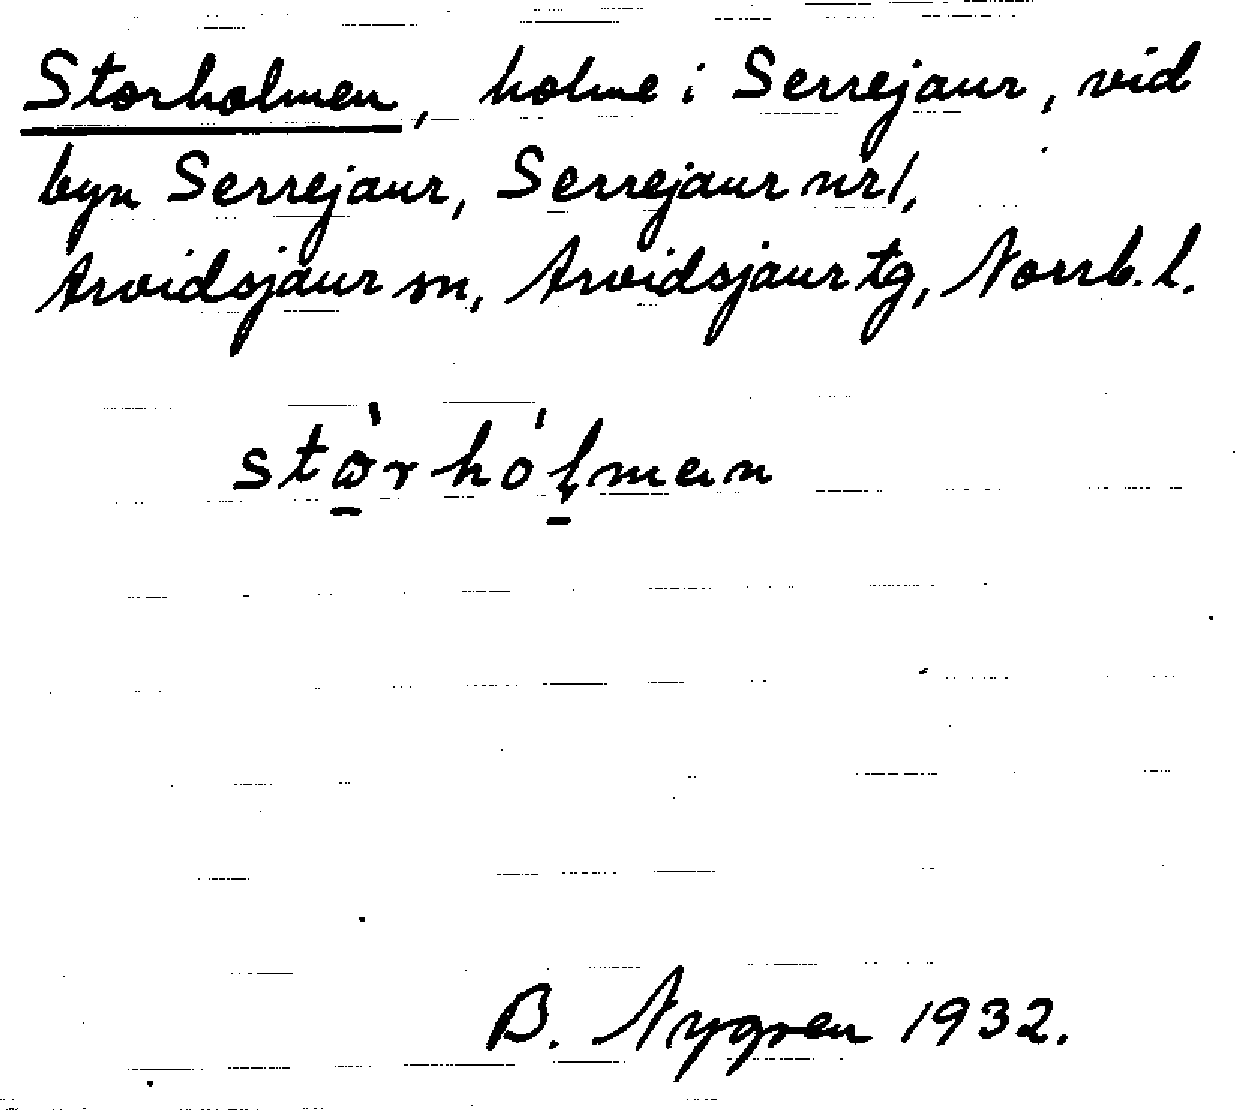 Storholmen, holme i Serrejaur, vid
byn Serrejaur, Serrejaur nr 1,
Arvidsjaur sn, Arvidsjaur tg, Norrb. l.
B. Nygren 1932.